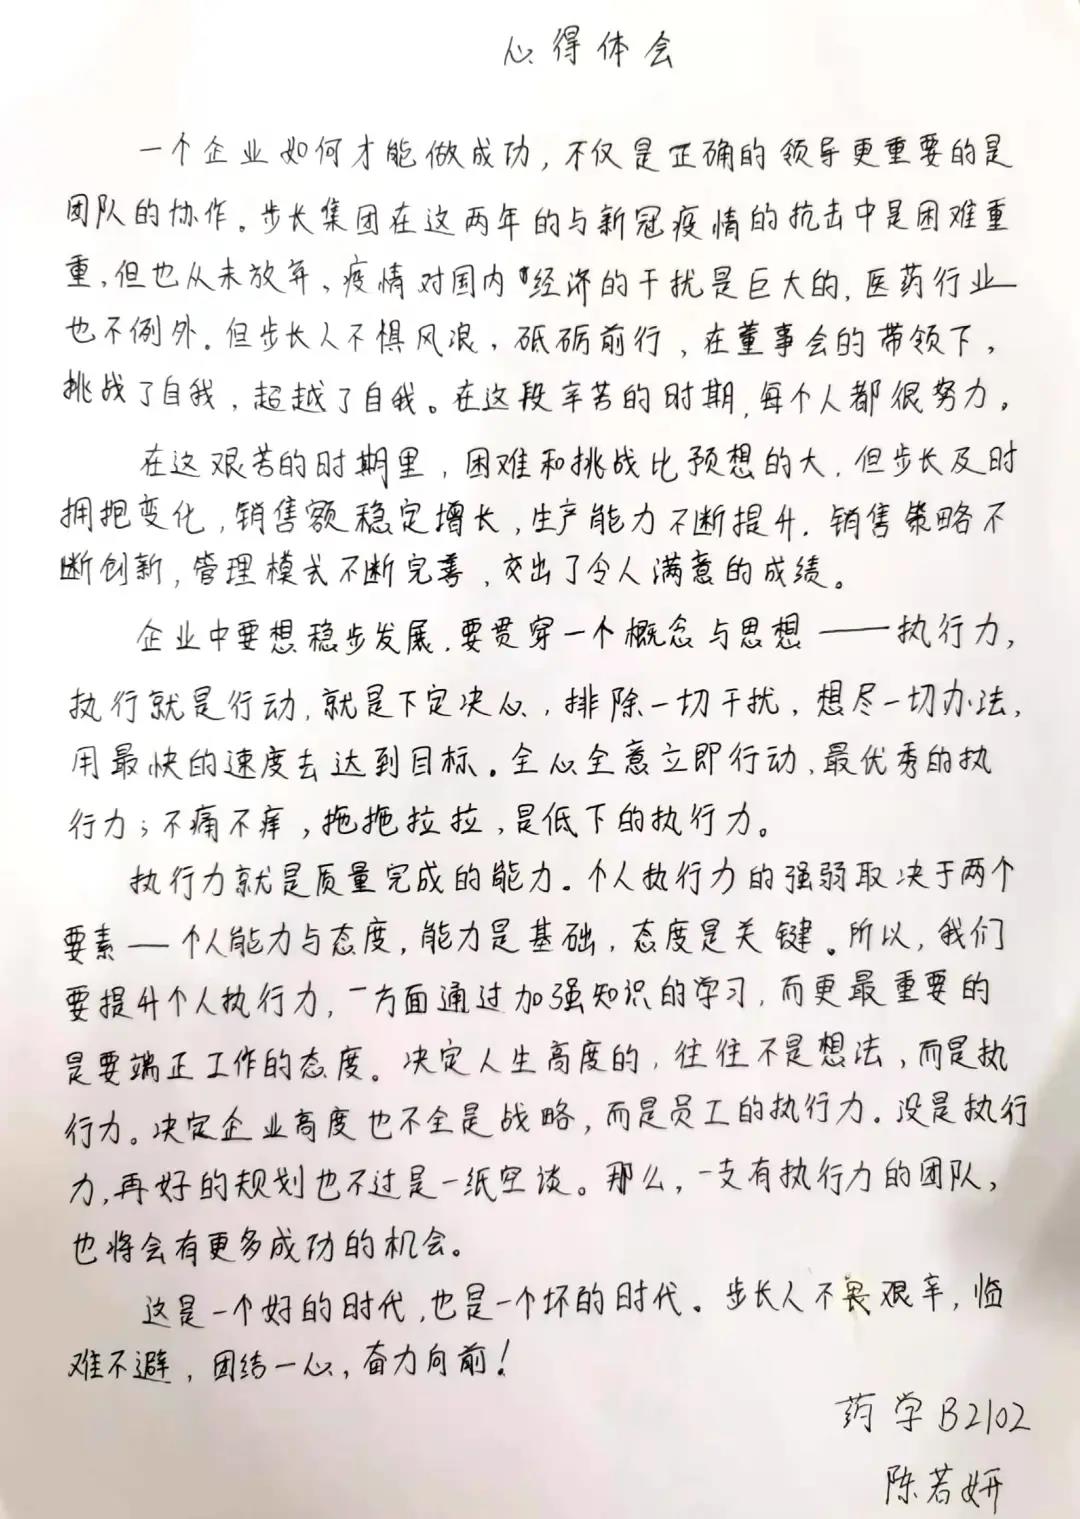 心得体会
一个企业如何才能做成功，不仅是正确的领导更重要的是
团队的协作。步长集团在这两年的与新冠疫情的抗击中是困难重
重，但也从未放弃、疫情对国内经济的干扰是巨大的，医药行业
也不例外。但步长人不惧风浪，砥砺前行，在董事会的带领下，
挑战了自我，超越了自我。在这段辛苦的时期，每个人都很努力。
在这艰苦的时期里，困难和挑战比预想的大，但步长及时
拥抱变化，销售额稳定增长，生产能力不断提升，销售策略不
断创新，管理模式不断完善，交出了令人满意的成绩。
企业中要想稳步发展，要贯穿一个概念与思想——执行力，
执行就是行动，就是下定决心，排除一切干扰，想尽一切办法，
用最快的速度去达到目标。全心全意立即行动，最优秀的执
行力；不痛不痒，拖拖拉拉，是低下的执行力。
执行力就是质量完成的能力。个人执行力的强弱取决于两个
要素—个人能力与态度，能力是基础，态度是关键。所以，我们
要提升个人执行力，一方面通过加强知识的学习，而更最重要的
是要端正工作的态度。决定人生高度的，往往不是想法，而是执
行力。决定企业高度也不全是战略，而是员工的执行力。没是执行
力，再好的规划也不过是一纸空谈。那么，一支有执行力的团队，
也将会有更多成功的机会。
这是一个好的时代，也是一个坏的时代。步长人不畏艰辛，临
难不避，团结一心，奋力向前！
药学B2102
陈若妍